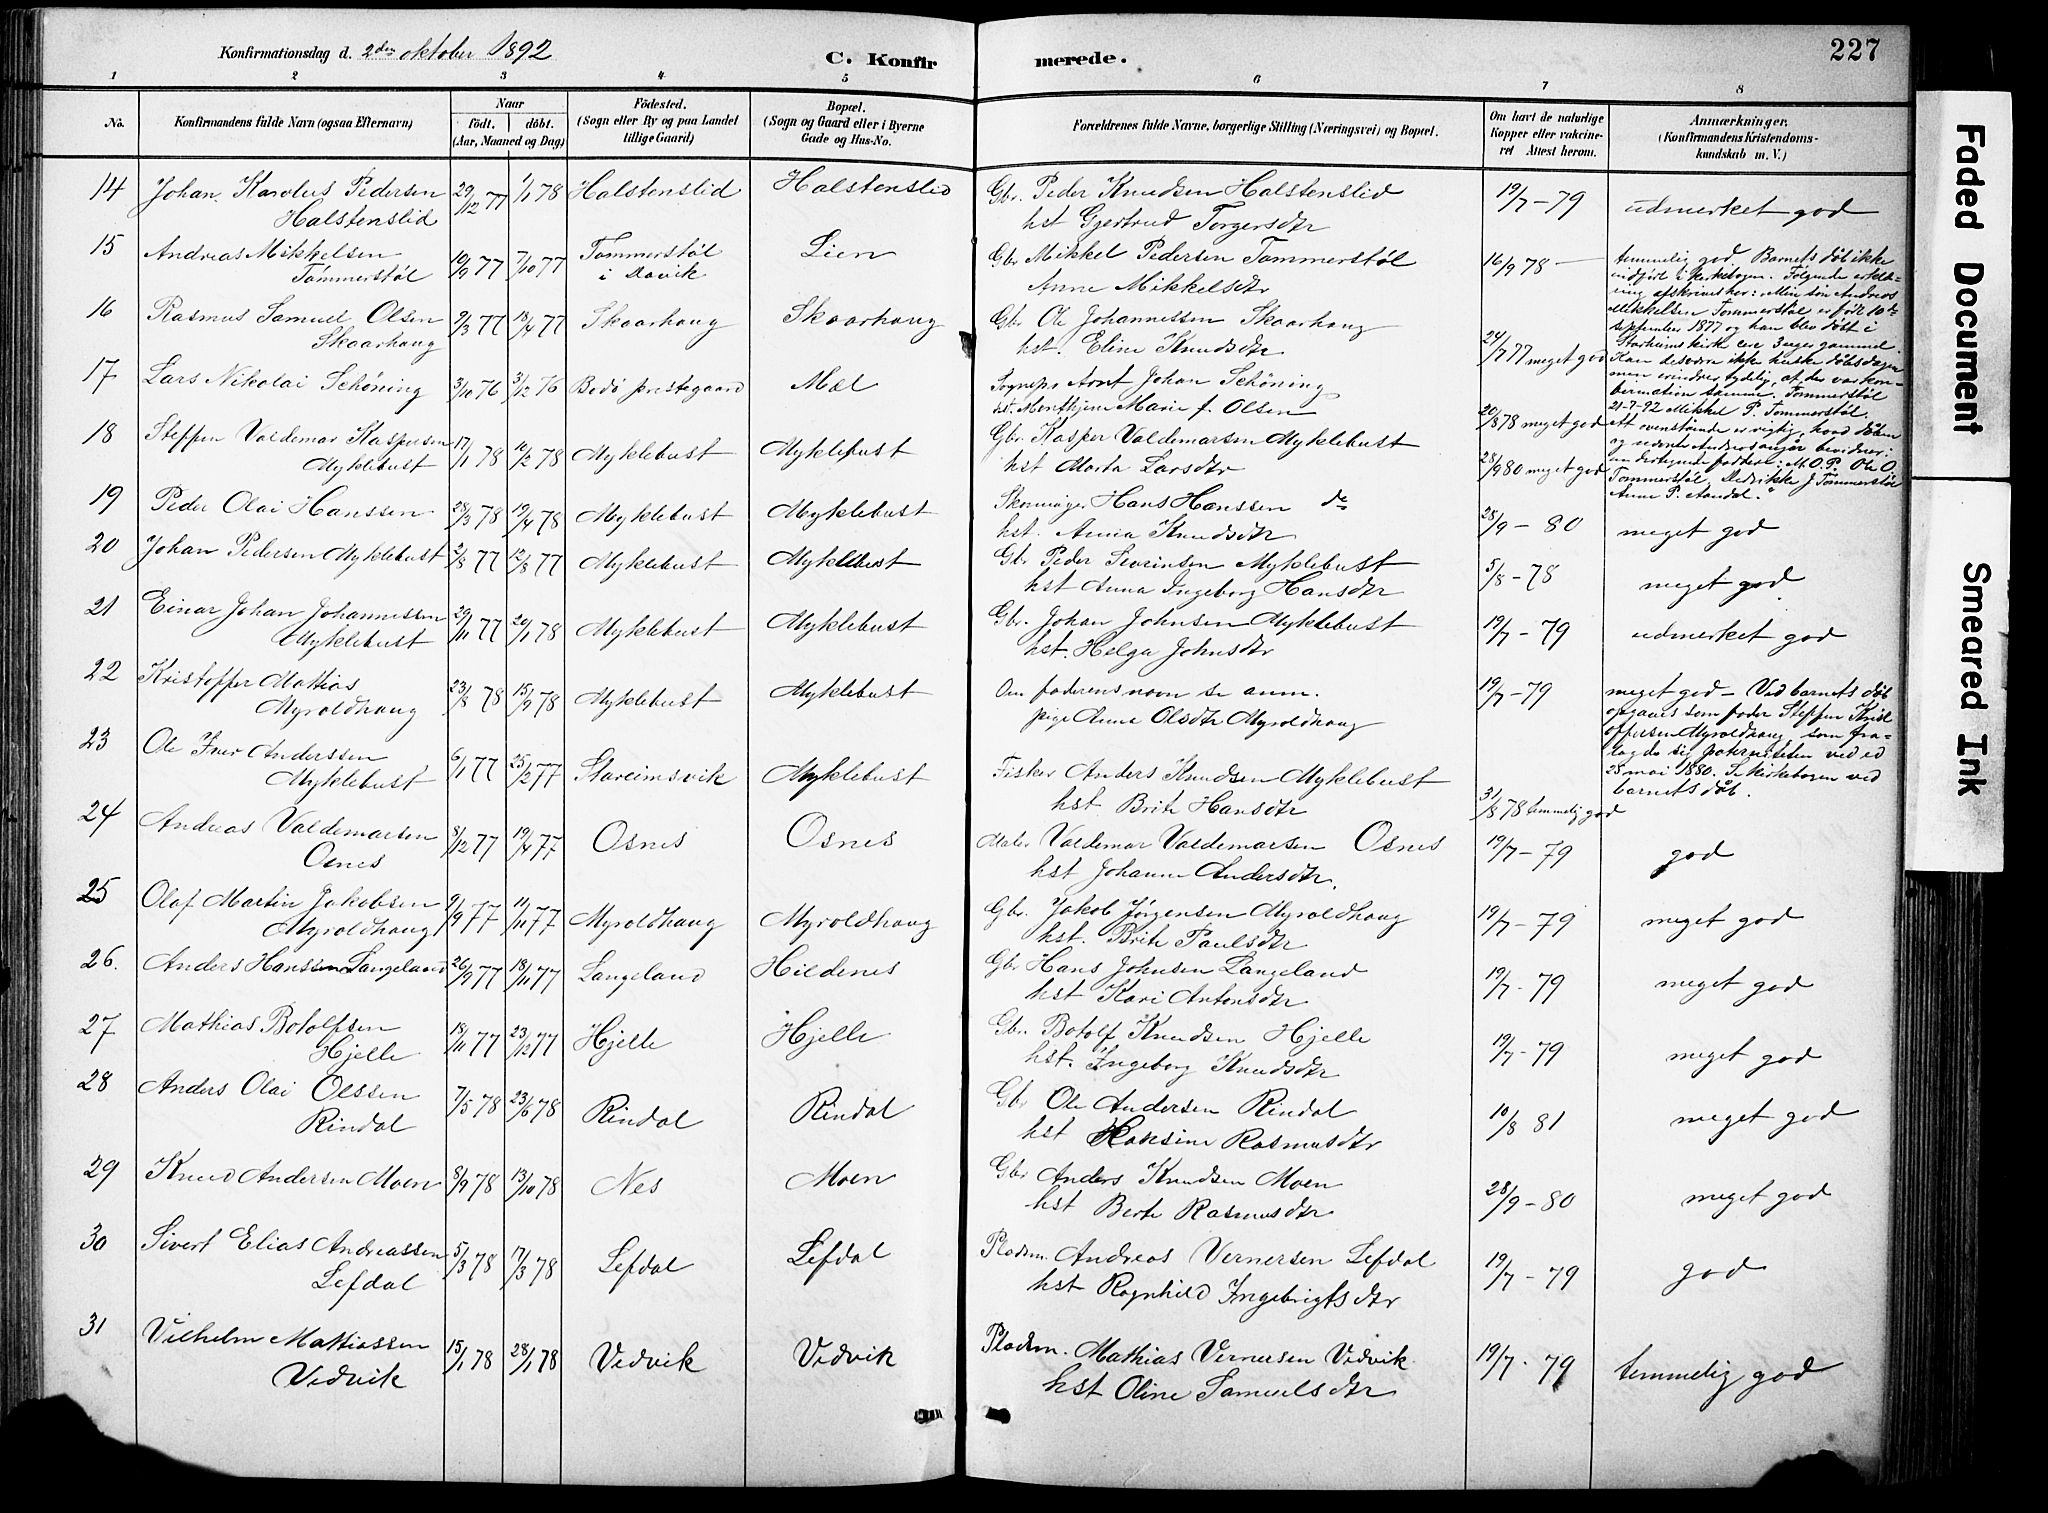 Konfirmationsdag d. 2den oktober 1892
C. Konfirmerede.
227
1 2 3 4 5 6 7 8
No.
Konfirmandens fulde Navn (ogsaa Efternavn)
Naar
født. døbt.
(Aar, Maaned og Dag)
Fødested.
(Sogn eller By og paa Landet
tillige Gaard)
Bopæl.
(Sogn og Gaard eller i Byerne
Gade og Hus-No.
Forældrenes fulde Navne, borgerlige Stilling (Næringsvei) og Bopæl.
Om havt de naturlige
Kopper eller vakcine-
ret Attest herom.
Anmærkninger.
(Konfirmandens Kristendoms-
kundskab m. V.)
14 Johan Karolus Pedersen 29/12 77 1/1 78 Halstenslid Halstenslid Gbr. Peder Knudsen Halstenslid 19/7 - 79 udmerket god
Halstenslid hst Gjertrud Torgersdtr
15 Andreas Mikkelsen 10/9 77 7/10 77 Tømmerstøl Lien Gbr Mikkel Pedersen Tømmerstøl 16/9 78 - temmelig god. Barnets døb ikke
Tømmerstøl i Davik Anne Mikkelsdtr
indført i kirkebogen. Følgende erklæ-
ring afskrives her: Min søn Andreas
Mikkelsen Tømmerstøl er født 10de
september 1877 og han blev døbt i
Starheims kirke ca 3 uger gammel
Kan desværre ikke huske døbsdagen
men erindrer tydelig, at der var kon-
firmation samme. Tømmerstøl
21-7-92 Mikkel P. Tømmerstøl.
Att ovenstående er rigtig, hvad døben
og alderen angår bevidner
undertegnede faddere: M. O. P. Ole O.
Tømmerstøl, Fredrikke J Tømmerstøl
Anne P. Aandal."
16 Rasmus Samuel Olsen 9/3 77 18/4 77 Skaarhaug Skaarhaug Gbr Ole Johannessen Skaarhaug 24/7 77 meget god
Skaarhaug hst. Eline Knudsdtr
17 Lars Nikolai Schöning 3/10 76 3/12 76 Bodø prestegaard Mæl Sognepr Arnt Johan Schöning 20/8 78 meget god
hst. Marie f. Olsen
18 Steffen Valdemar Kaspersen 17/1 78 10/2 78 Myklebust Myklebust Gbr. Kasper Valdemarsen Myklebust 28/9 80 meget god
Myklebust hst Marta Larsdtr
19 Peder Olai Hanssen 28/3 78 19/4 78 Myklebust Myklebust Hans Hanssen do 28/9 - 80 meget god
hst. Anna Knudsdtr
20 Johan Pedersen Myklebust 2/8 77 12/8 77 Myklebust Myklebust Gbr Peder Severinsen Myklebust 5/8 - 78 meget god
hst Anna Ingeborg Hansdtr
21 Einar Johan Johannessen 29/11 77 20/1 78 Myklebust Myklebust Gbr. Johan Johnsen Myklebust 19/7 - 79 udmerket god
Myklebust hst. Helga Johnsdtr
22 Kristoffer Mathias 23/8 78 15/9 78 Myklebust Myklebust Om faderens navn se anm. 19/7 - 79 meget god - Ved barnets døb
Myroldhaug pige Anne Olsdtr Myroldhaug
opgaves som fader Steffen Krist-
offersen Myroldhaug, som fra-
lagde sig paterniteten ved ed
28 mai 1880. Se kirkebogen ved
barnets døb.
23 Ole Iver Anderssen 6/1 77 25/2 77 Stareimsvik Myklebust Fisker Anders Knudsen Myklebust 31/8 78 temmelig god
Myklebust hst. Brite Hansdtr
24 Andreas Valdemarsen 8/12 77 19/4 77 Osnes Osnes Maler Valdemar Valdemarsen Osnes 19/7 - 79 god
Osnes hst Johanne Andersdtr.
25 Olaf Martin Jakobsen 9/9 77 11/11 77 Myroldhaug Myroldhaug Gbr. Jakob Jørgensen Myroldhaug 19/7 - 79 meget god
Myroldhaug hst. Brite Paulsdtr
26. Anders Hanssen Langeland 26/9 77 18/11 77 Langeland Hildenes Gbr Hans Johnsen Langeland 19/7 - 79 meget god
hst Kari Antonsdtr
27 Mathias Botolfsen 18/11 77 23/12 77 Hjelle Hjelle Gbr. Botolf Knudsen Hjelle 19/7 - 79 meget god
Hjelle hst. Ingeborg Knudsdtr
28 Anders Olai Olssen 7/5 78 23/6 78 Rindal Rindal Gbr Ole Andersen Rindal 10/8 81 meget god
Rindal hst Rasmusdtr
29 Knud Andersen Moen 8/9 78 13/10 78 Nes Moen Gbr Anders Knudsen Moen 28/9 - 80 meget god
hst Berte Rasmusdtr
30 Sivert Elias Andreassen 5/3 78 17/3 78 Lefdal Lefdal Pladsm. Andreas Vernersen Lefdal 19/7 - 79 god
Lefdal hst Ragnhild Ingebrigtsdtr
31 Vilhelm Mathiassen 15/1 78 28/1 78 Vedvik Vedvik Pladsm. Mathias Vernersen Vedvik 19/7 - 79 temmelig god
Vedvik hst Oline Samuelsdtr
Faded Document
Smeared Ink